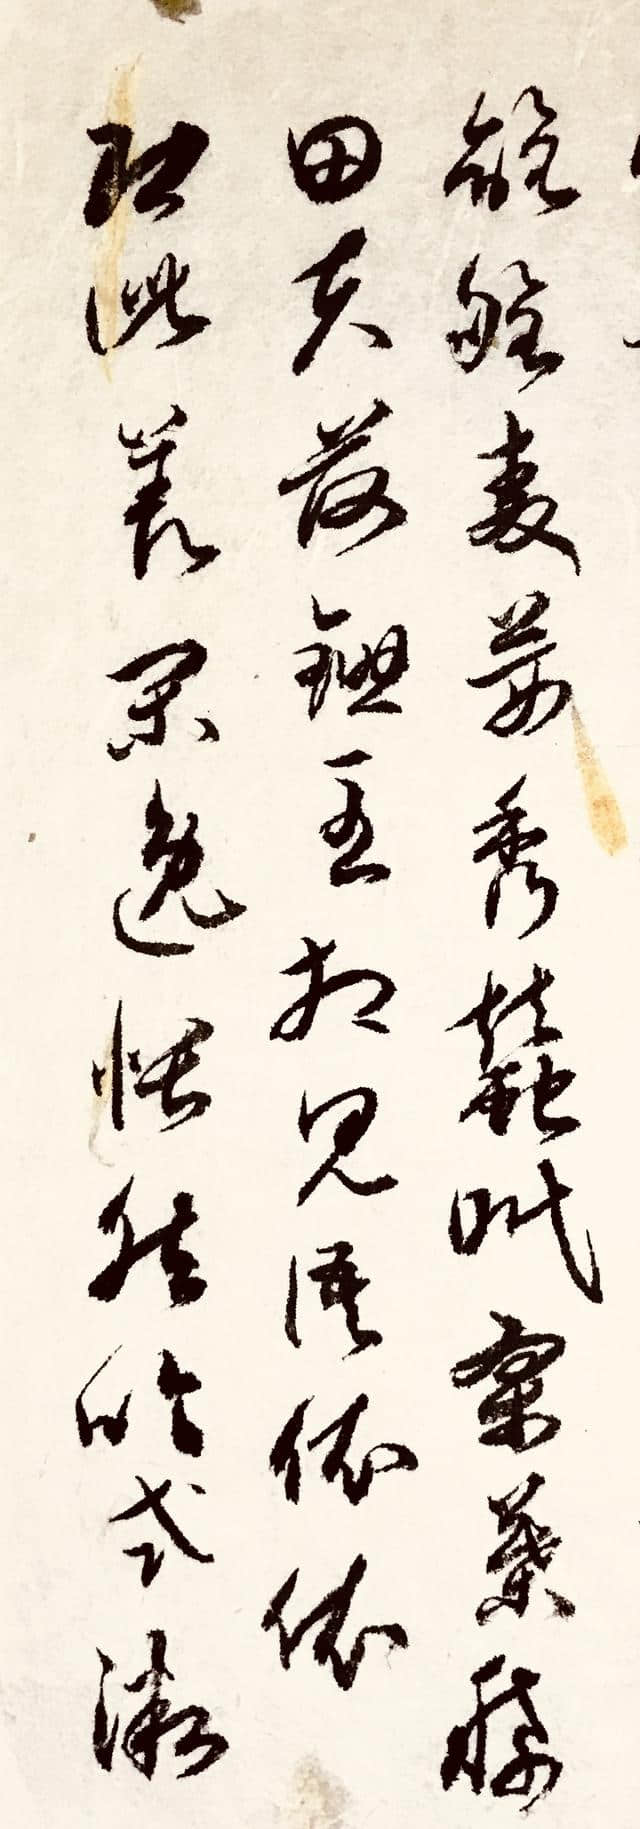 雉雊麥苗秀蠶眠桑葉稀
田夫荷鋤至相見語依依
即此羨閑逸悵然吟式微